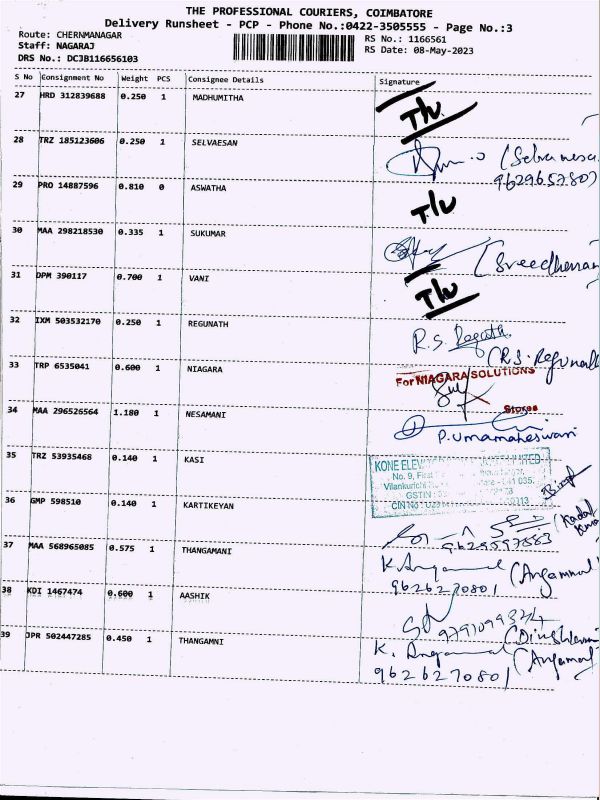 THE PROFESSIONAL COURIERS, COIMBATORE
Delivery Runsheet - PCP - Phone No.:0422-3505555 - Page No.:3
Route: CHERNMANAGAR RS No.: 1166561
Staff: NAGARAJ RS Date: 08-May-2023
DRS No.: DCJB116656103
S No Consignment No Weight PCS Consignee Details Signature
27 HRD 312839688 0.250 1 MADHUMITHA
28 TRZ 185123606 0.250 1 SELVAESAN
9629657807
29 PRO 14887596 0.810 0 ASWATHA
30 MAA 298218530 0.335 1 SUKUMAR
31 DPM 390117 0.700 1 VANI
32 IXM 503532170 0.250 1 REGUNATH R.S. Regath.
33 TRP 6535041 0.600 1 NIAGARA For NIAGARA SOLUTIONS
Stores
34 MAA 296526564 1.180 1 NESAMANI
P. Umamaheswari
35 TRZ 53935468 0.140 1 KASI KONE ELEV LIMITED
No. 9, First
Vilankurichi 641 035.
GSTIN
CIN No
36 GMP 598510 0.140 1 KARTIKEYAN
9629597883
37 MAA 568965085 0.575 1 THANGAMANI K. Angamal (Angammal)
9626270801
38 KDI 1467474 0.600 1 AASHIK
39 JPR 502447285 0.450 1 THANGAMNI K. Angamal (Angamal)
9626270801